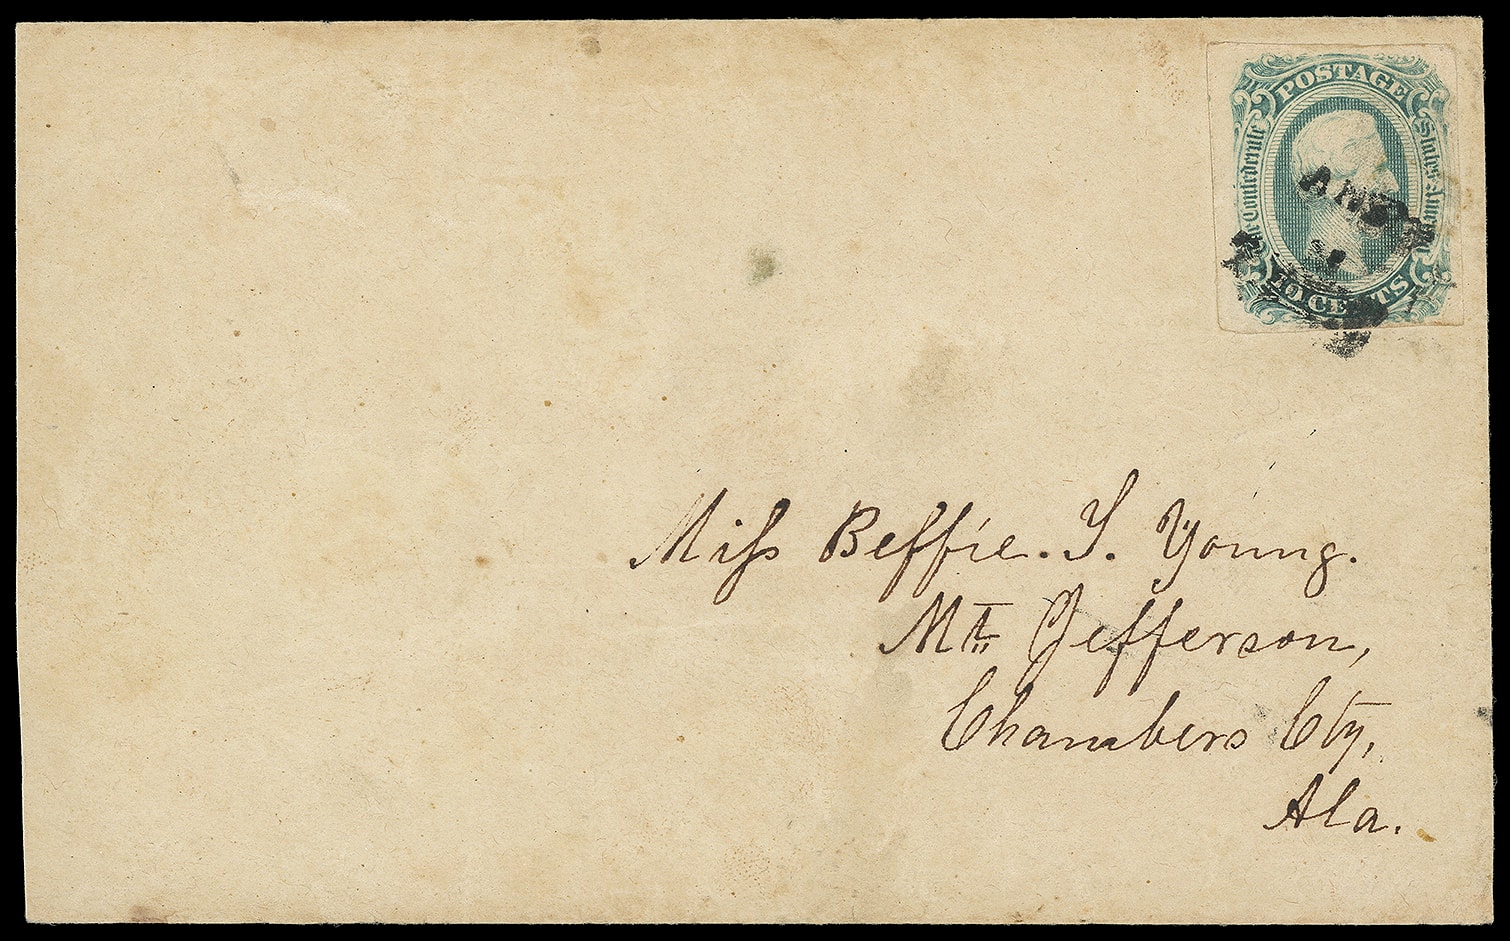 POSTAGE
The Confederate States of America
10 CENTS
Miss Beffie. T. Young.
Mt. Jefferson,
Chambers Cty,
Ala.